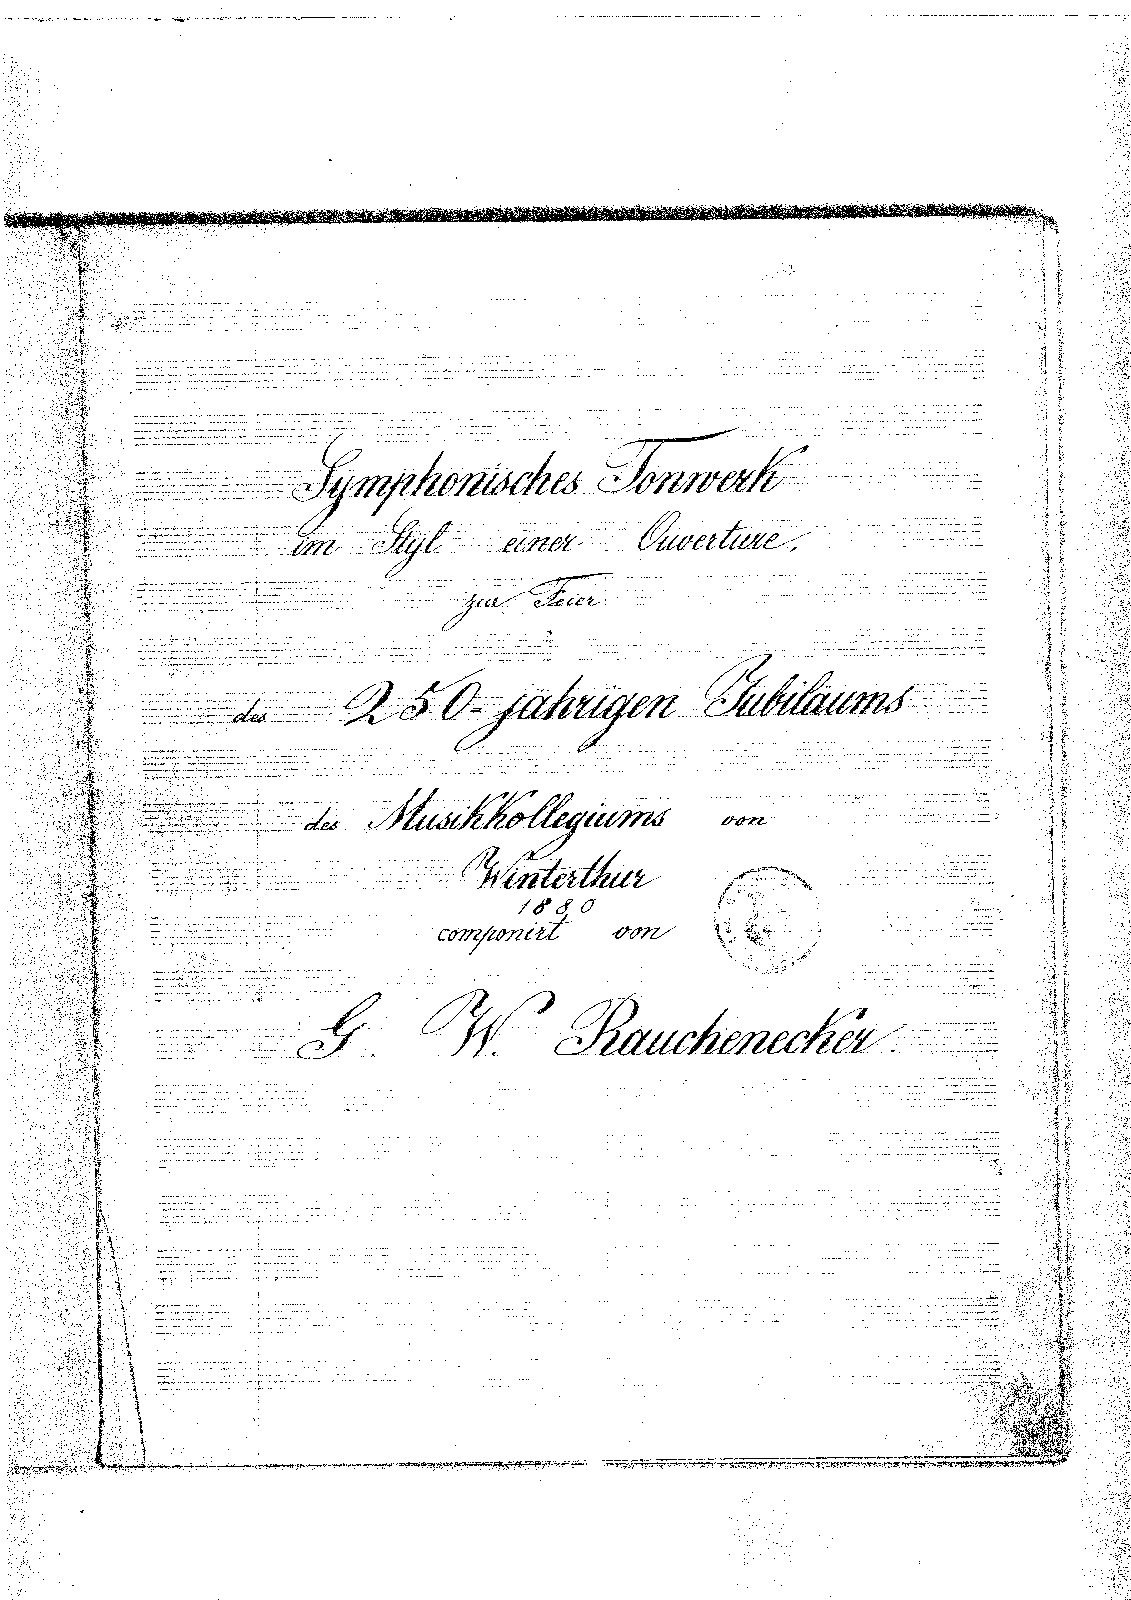 Symphonisches Tonwerk
im Styl einer Ouverture.
zur Feier
des 250-jährigen Jubiläums
des Musikkollegiums von
Winterthur
1880
componirt von
G. W. Rauchenecker.